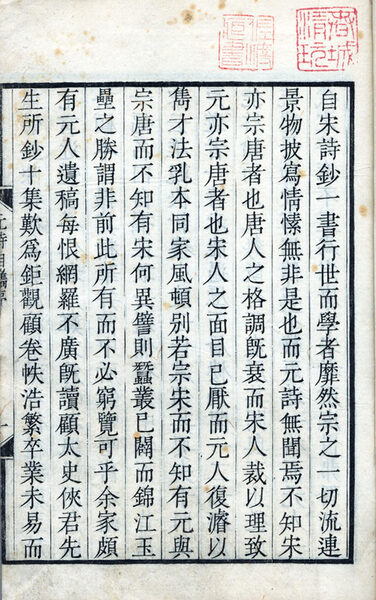 自宋詩鈔一書行世而學者靡然宗之一切流連
景物披寫情愫無非是也而元詩無聞焉不知宋
亦宗唐者也唐人之格調旣衰而宋人裁以理致
元亦宗唐者也宋人之面目已厭而元人復濬以
雋才法乳本同家風頓別若宗宋而不知有元與
宗唐而不知有宋何異譬則蠶叢已闢而錦江玉
壘之勝謂非前此所有而不必窮覽可乎余家頗
有元人遺稿每恨網羅不廣旣讀顧太史俠君先
生所鈔十集歎爲鉅觀顧卷帙浩繁卒業未易而